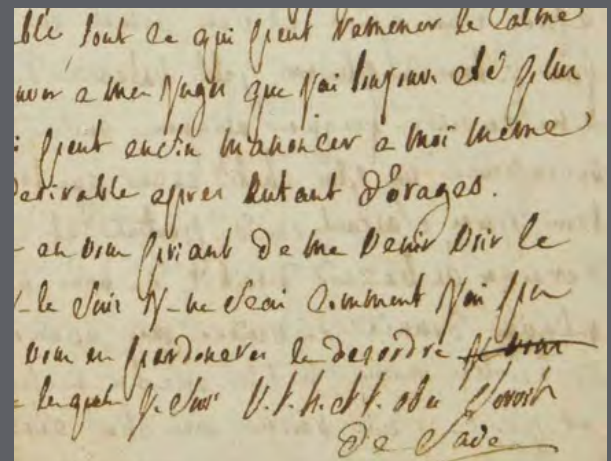 tout ce qui peut ramener le calme
a mes juges que j'ai toujours eté plus
peut enfin m'anoncer a moi meme
desirable apres autant d'orages.
en vous priant de me venir voir le
je ne scai comment j'ai pu
vous en pardonerez le desordre
je suis V. t. h. et t. ob
de Sade